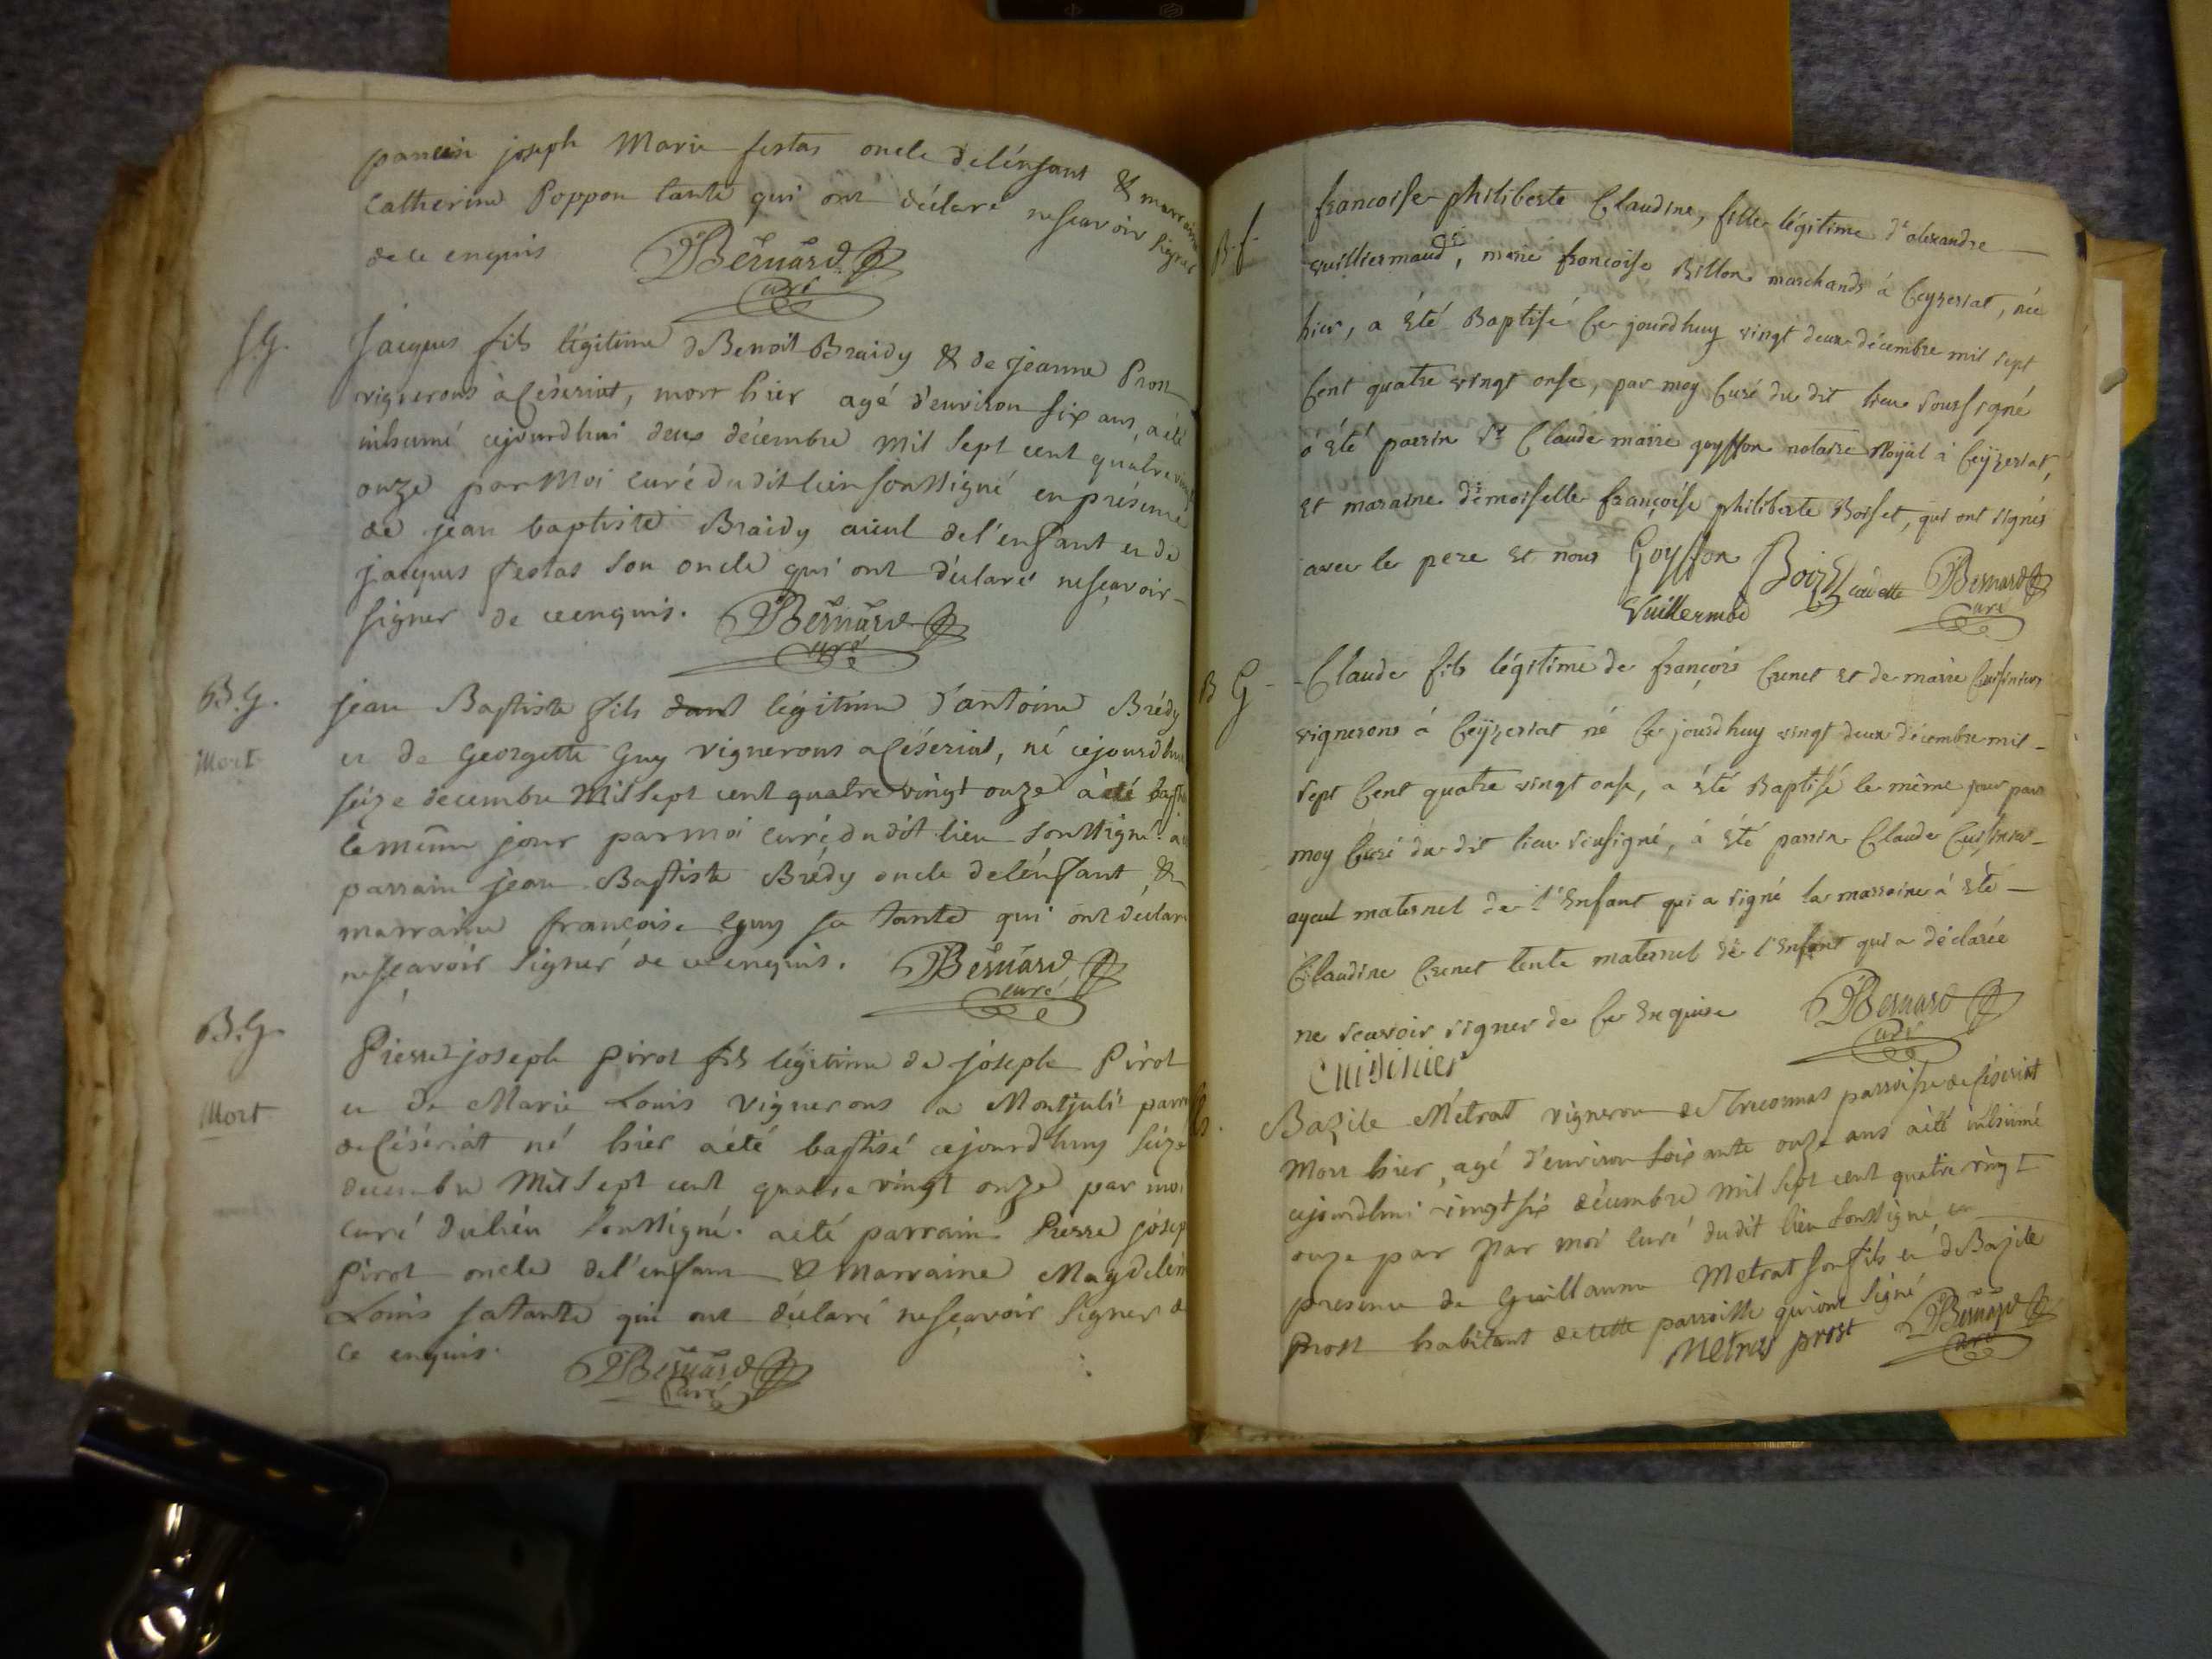 parrain joseph Marie festas oncle de lénfant & marraine
Catherine Poppon tante qui ont déclaré ne scavoir signer
de ce enquis DBernard
curé
S.G. Jacques fils légitime de Benoit Braidy & de jeanne Prost
vignerons à Céseriat, mort hier agé d'environ six ans, a été
inhumé cejourdhui deux décembre mil sept cent quatre vingt
onze par Moi curé du dit lieu soussigné en présence
de jean baptiste Braidy aieul de l'enfant et de
jacques festas son oncle qui ont déclaré ne sçavoir
signer de ce enquis. DBernard
curé
B.G. jean Baptiste fils légitime d'antoine Brédy
Mort et de Georgette Guy vignerons a Céseriat, né cejourdhui
seize décembre Mil sept cent quatre vingt onze à été baptisé
le même jour par moi curé du dit lieu soussigné. a
parrain jean Baptiste Brédy oncle de lénfant, &
marraine françoise Guy sa tante qui ont déclaré
ne sçavoir signer de ce enquis. DBernard
curé
B.G. Pierre joseph Pirot fils légitime de joseph Pirot
Mort et de Marie Louis vignerons a Montjuli parr
de Césériat né hier a été baptisé cejourdhuy seize
decembre Mil sept cent quatre vingt onze par moi
curé du lieu soussigné. a été parrain Pierre josep
Pirot oncle de l'enfant & marraine Magdelein
Louis sa tante qui ont déclaré ne sçavoir signer de
ce enquis. DBernard
Curé
B.f. francoise philiberte Claudine, fille légitime d'alexandre
vuilliermaud, et marie francoise Billon marchands á Ceyzeriat, née
hier, a été Baptisé Ce jourdhuy vingt deux décembre mil sept
Cent quatre vingt onse, par moy Curé du dit lieu soussigné
á été parrin Sr Claude marie goyffon notaire Royal á Ceyzeriat,
et maraine demoiselle françoise philiberte Boiset, qui ont signés
avec le pere et nous Goyffon Boizet cadette DBernard
Vuillermod curé
B G Claude fils légitime de françois Crenet et de marie Cuisinier
vignerons á Ceyzeriat né Ce jourdhuy vingt deux décembre mil
sept Cent quatre vingt onse, a été Baptisé le même jour par
moy Curé du dit lieu sousigné, á été parrin Claude Cuisinier
ayeul maternel de l'Enfant qui a signé la marraine á été
Claudine Crenet tente maternel de l'Enfant qui a déclarée
ne scavoir signer de Ce Enquise DBernard
Cuisinier curé
Bazile Métrat vigneron de Trecornas parroisse de Céseriat
Mort hier, agé d'environ soixante onze ans a été inhumé
cejourdhui vingt six décembre mil sept cent quatre vingt
onze par par moi curé du dit lieu soussigné en
presence de Guillaume Metrat son fils et de Bazile
Prost habitant de cette parroisse qui ont signé
Metras prost DBernard
curé